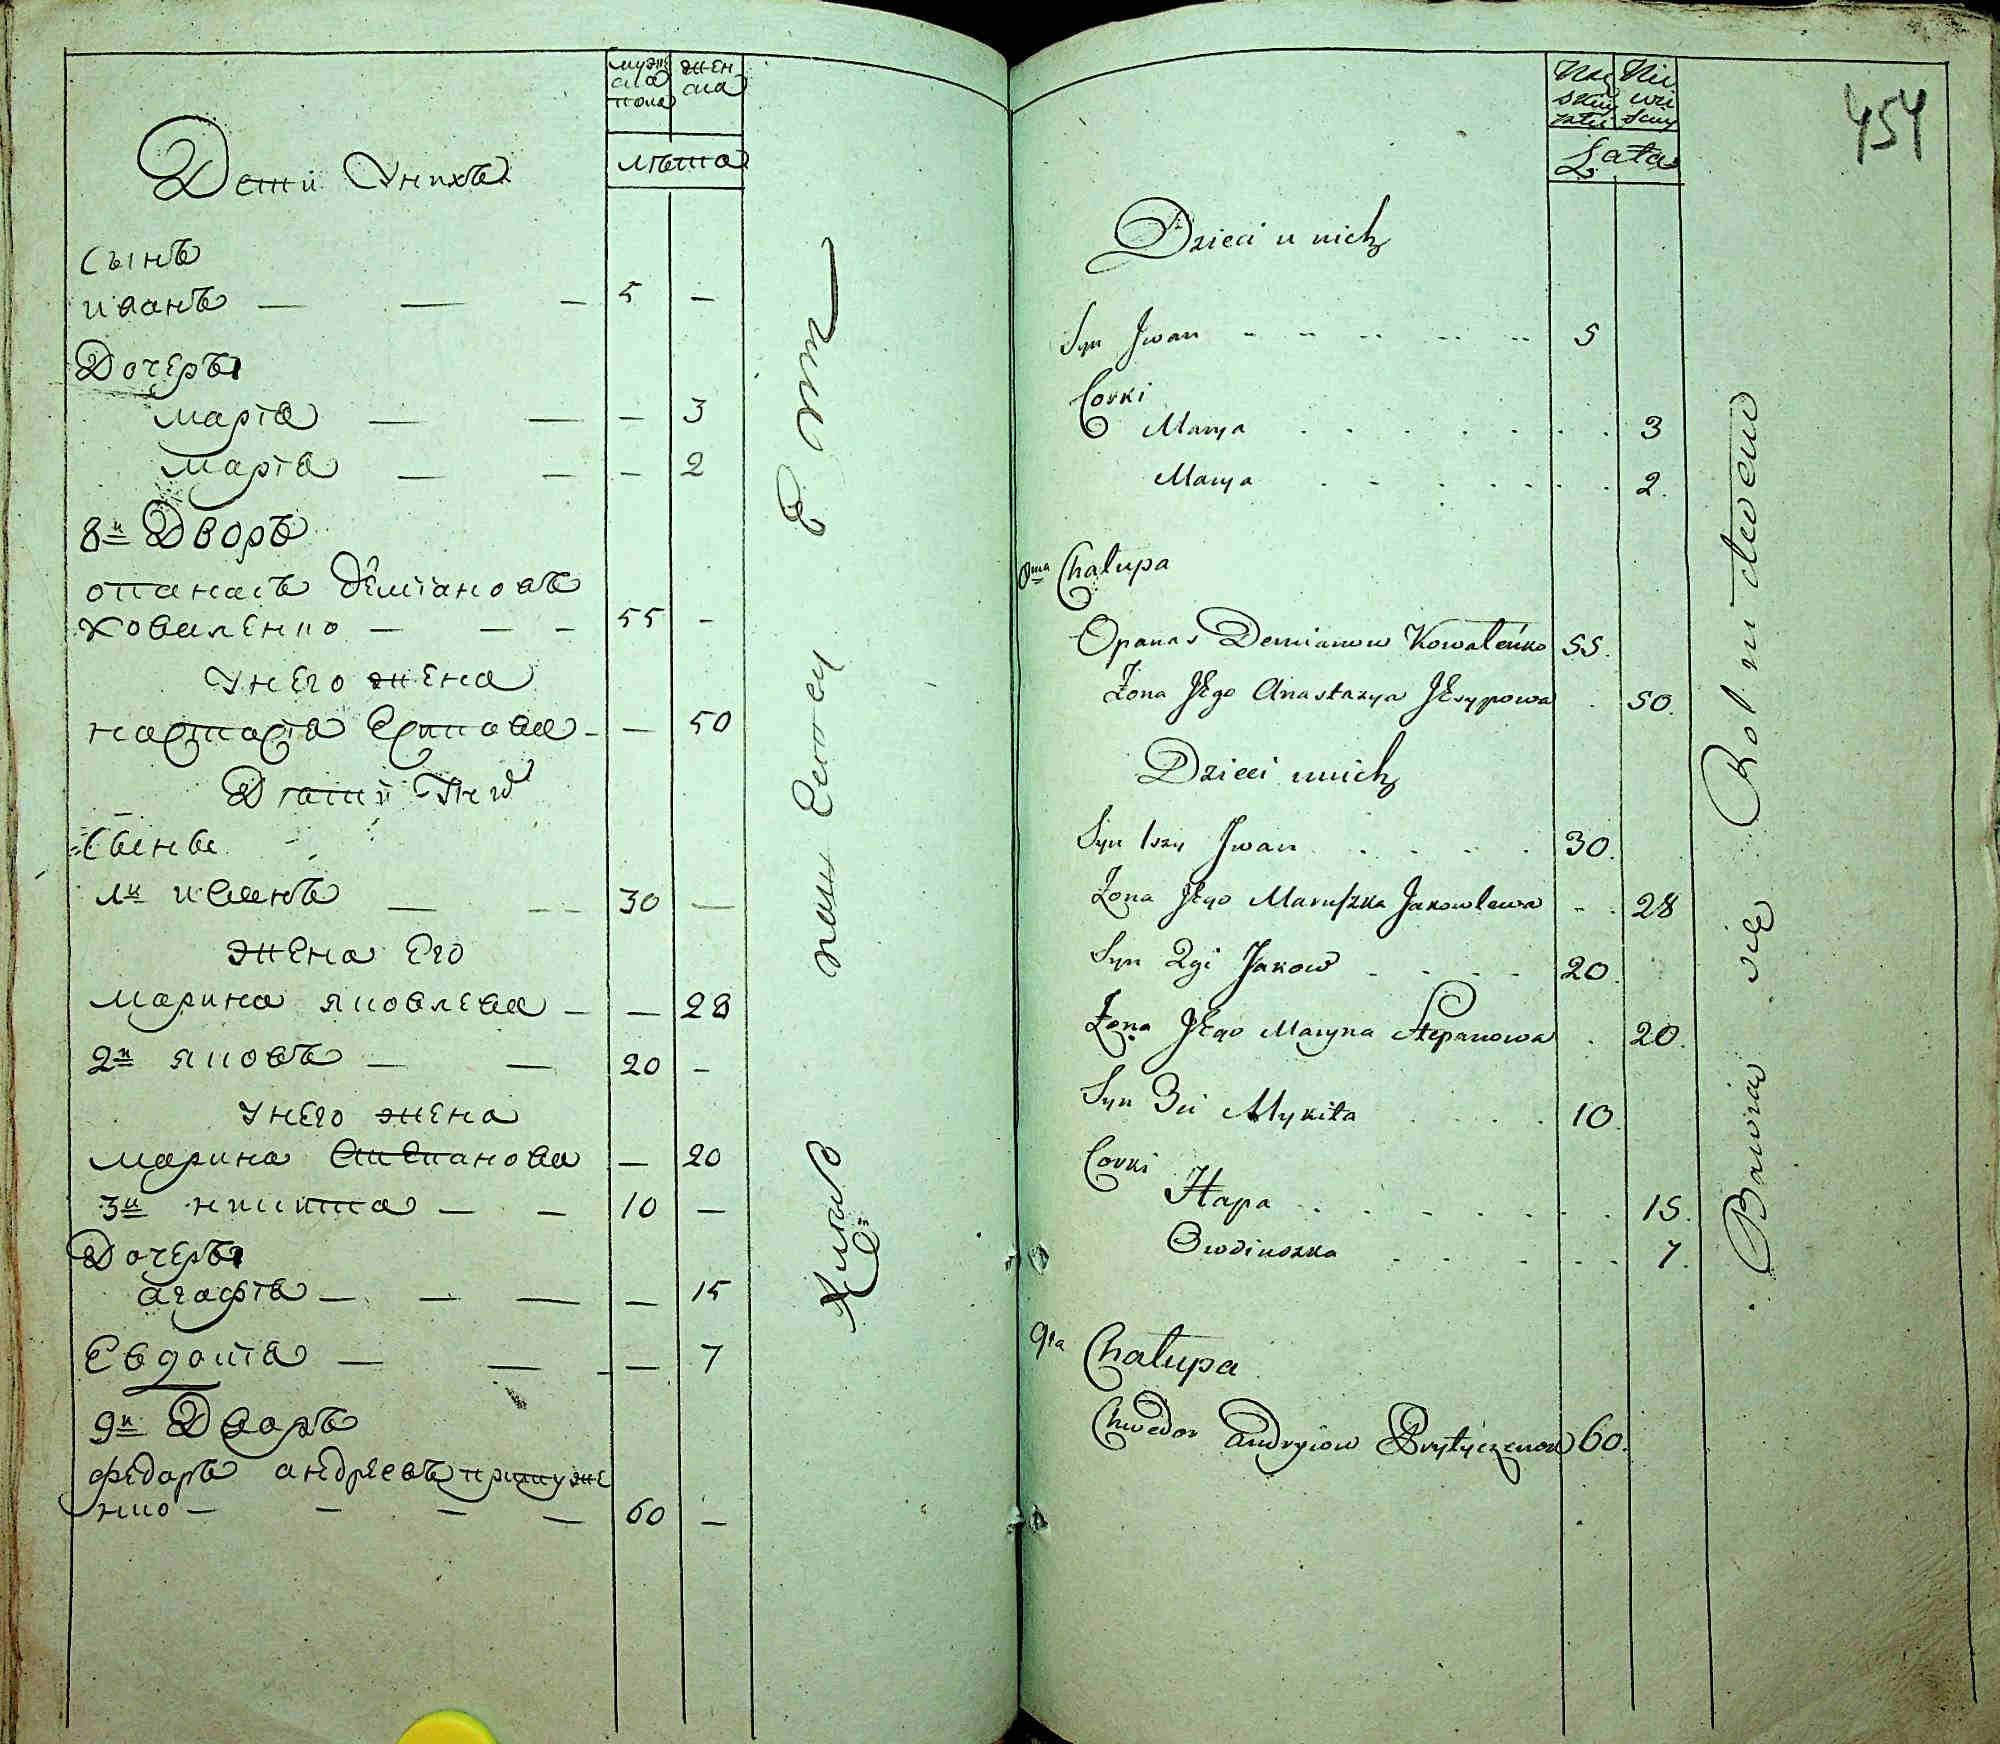 мужеска пола
женска
лѣта
Дети Унихъ
Сынъ
иванъ — — — 5 —
Дочеры
марїа — — — 3
марїа — — — 2
8й Дворъ
опанасъ демїановъ
коваленко — — — 55 —
Унего жена
настасїа Есипова — — 50
Дѣти У них
Сыны
1й иванъ — — 30 —
жена Его
марина яковлева — — 28
2й яковъ — — 20 —
Унего жена
марина Степанова — 20
3й никита — — 10 —
Дочеры
агафїа — — — — 15
Евдокїа — — — — 7
9й Дворъ
федоръ андрѣевъ
нко — — — — 60 —
454
Łata
Dzieci u nich
Syn Jwan 5
Corki
Marya 3
Marya 2.
8ma Chalupa
Opanas Demianow Kowaleńko 55.
Żona Jego Anastazya Jesypowa 50.
Dzieci unich
Syn 1szy Jwan 30.
Żona Jego Maruszka Jakowlewa 28
Syn 2gi Jakow 20.
Żona Jego Maryna Stepanowa 20.
Syn 3ci Mykita 10.
Corki
Hapa 15.
Owdiuszka 7.
9ta Chalupa
Chwedor Andryiow 60.
Bawia się Rolnictwem